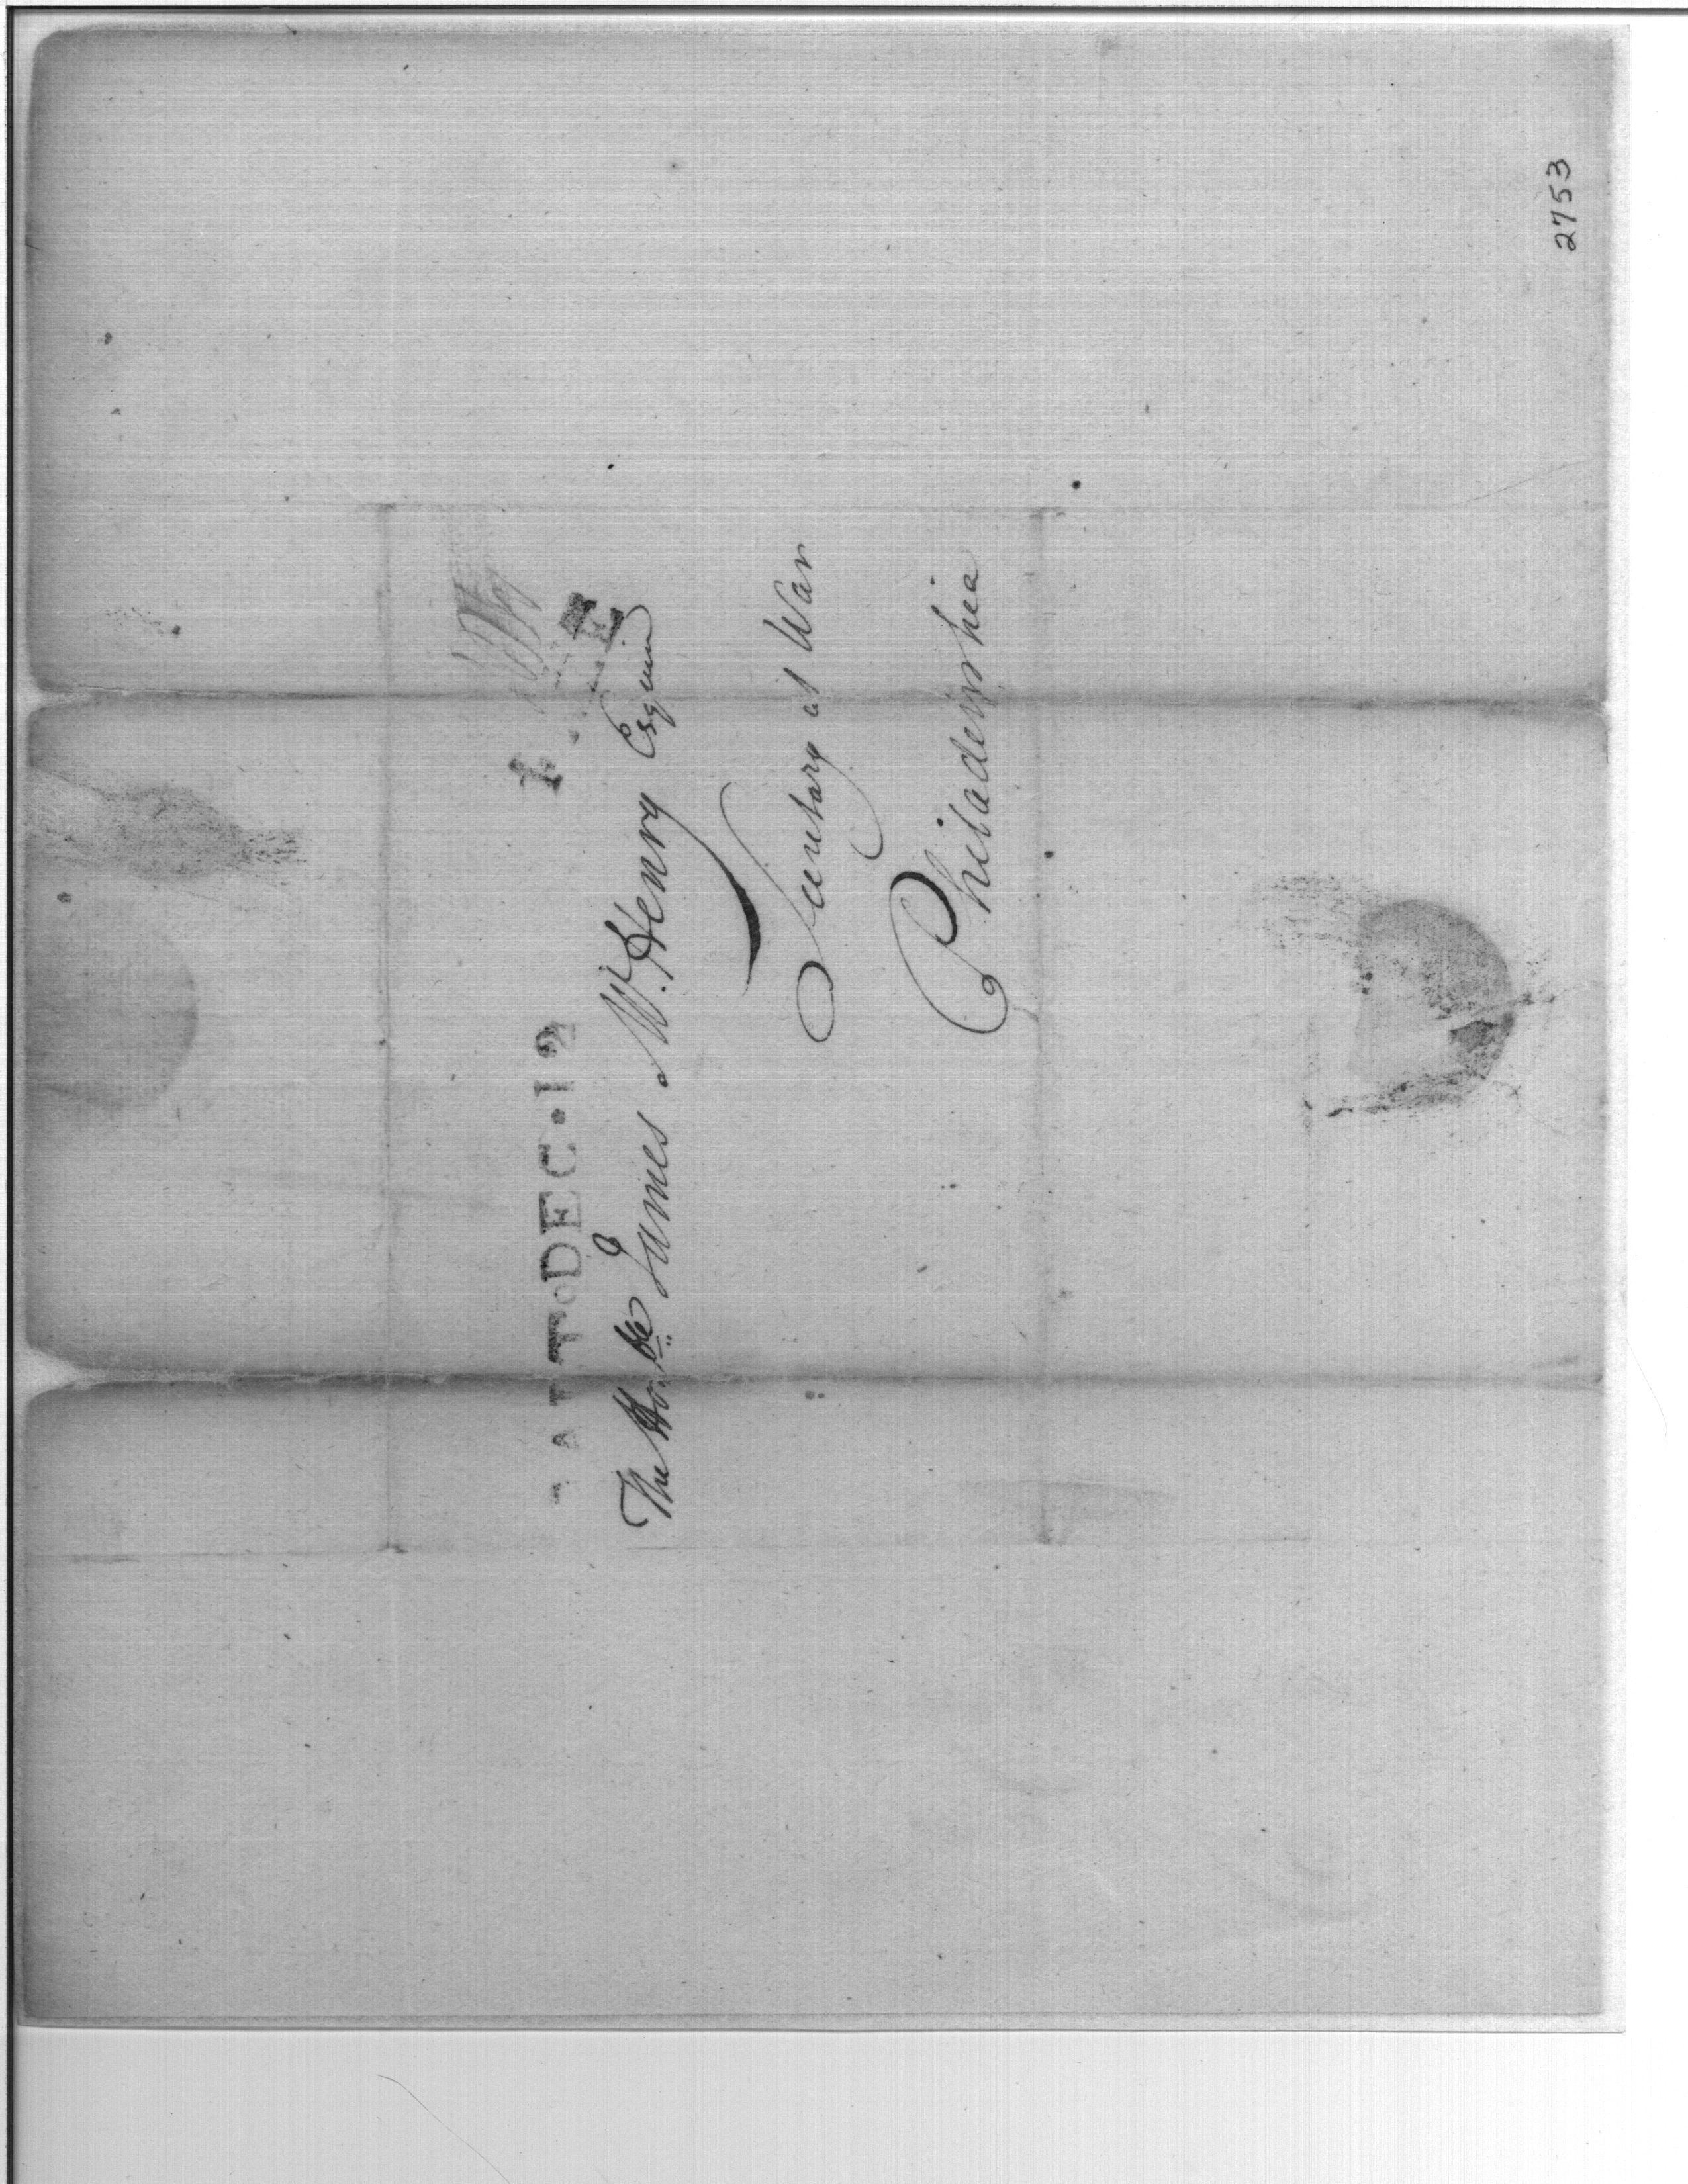 BALT. DEC. 12
FREE
The Honble. James McHenry Esquire
Secretary at War
Philadelphia
2753